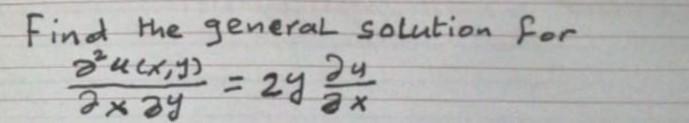 Find the general solution for
∂²u(x,y)/∂x∂y = 2y ∂u/∂x